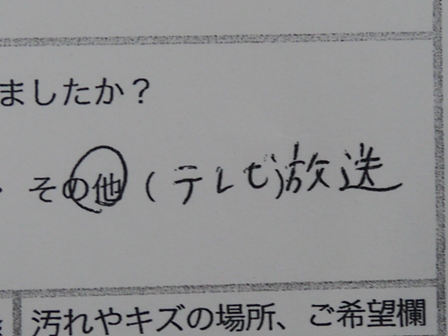 ましたか？
・その他（テレビ)放送
汚れやキズの場所、ご希望欄